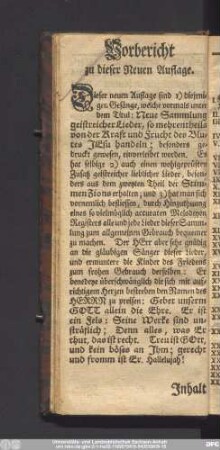 Vorbericht
zu dieser Neuen Auflage.
Dieser neuen Auflage sind 1) diejeni-
gen Gesänge, welche vormals unter
dem Titul: Neue Sammlung
geistreicher Lieder, so mehrentheils
von der Kraft und Frucht des Blu-
tes JEsu handeln; besonders ge-
druckt gewesen, einverleibet worden. Es
hat selbige 2) auch einen wohlgeprüften
Zusatz geistreicher lieblicher lieder, beson-
ders aus dem zweyten Theil der Stim-
men Zions erhalten; und 3) hat man sich
vornemlich beflissen, durch Hinzuthuung
eines so viel möglich accuraten Melodeyen
Registers alle und jede lieder dieser Samm-
lung zum allgemeinen Gebrauch bequemer
zu machen. Der HErr aber sehe gnädig
an die gläubigen Sänger dieser lieder,
und ermuntre die Kinder des Friedens
zum frohen Gebrauch derselben: Er
benedeye überschwänglich die sich mit auf-
richtigem Herzen bestreben den Namen des
HERRN zu preisen: Gebet unserm
GOTT allein die Ehre. Er ist
ein Fels: Seine Werke sind un-
sträflich; Denn alles, was Er
thut, das ist recht. Treu ist GOtt,
und kein böses an Ihm; gerecht
und fromm ist Er. Hallelujah!
Inhalt
Universitäts- und Landesbibliothek Sachsen-Anhalt